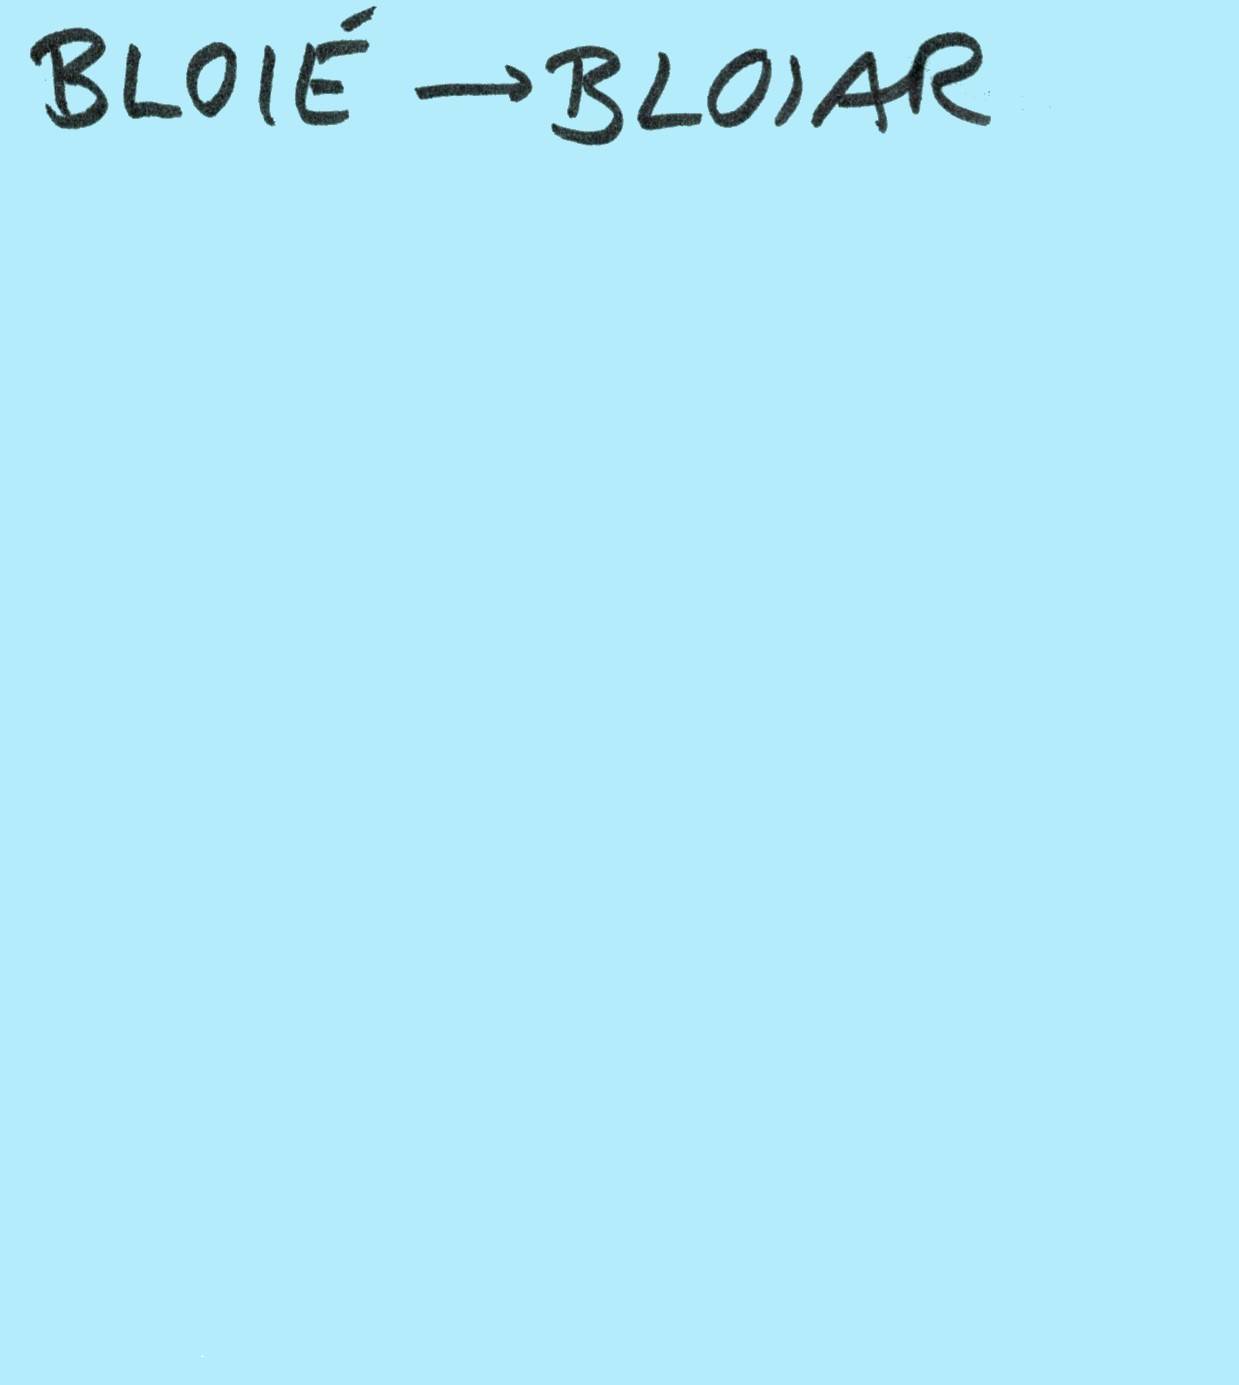 BLOIÉ → BLOIAR